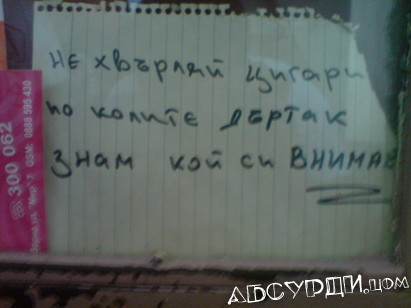 НЕ ХВЪРЛЯЙ ЦИГАРИ
ПО КОЛИТЕ ДЪРТАК
ЗНАМ КОЙ СИ ВНИМАВ
300 062
GSM: 0888 595 430
ул. "Мир" 7
АБСУРДИ.ЦОМ